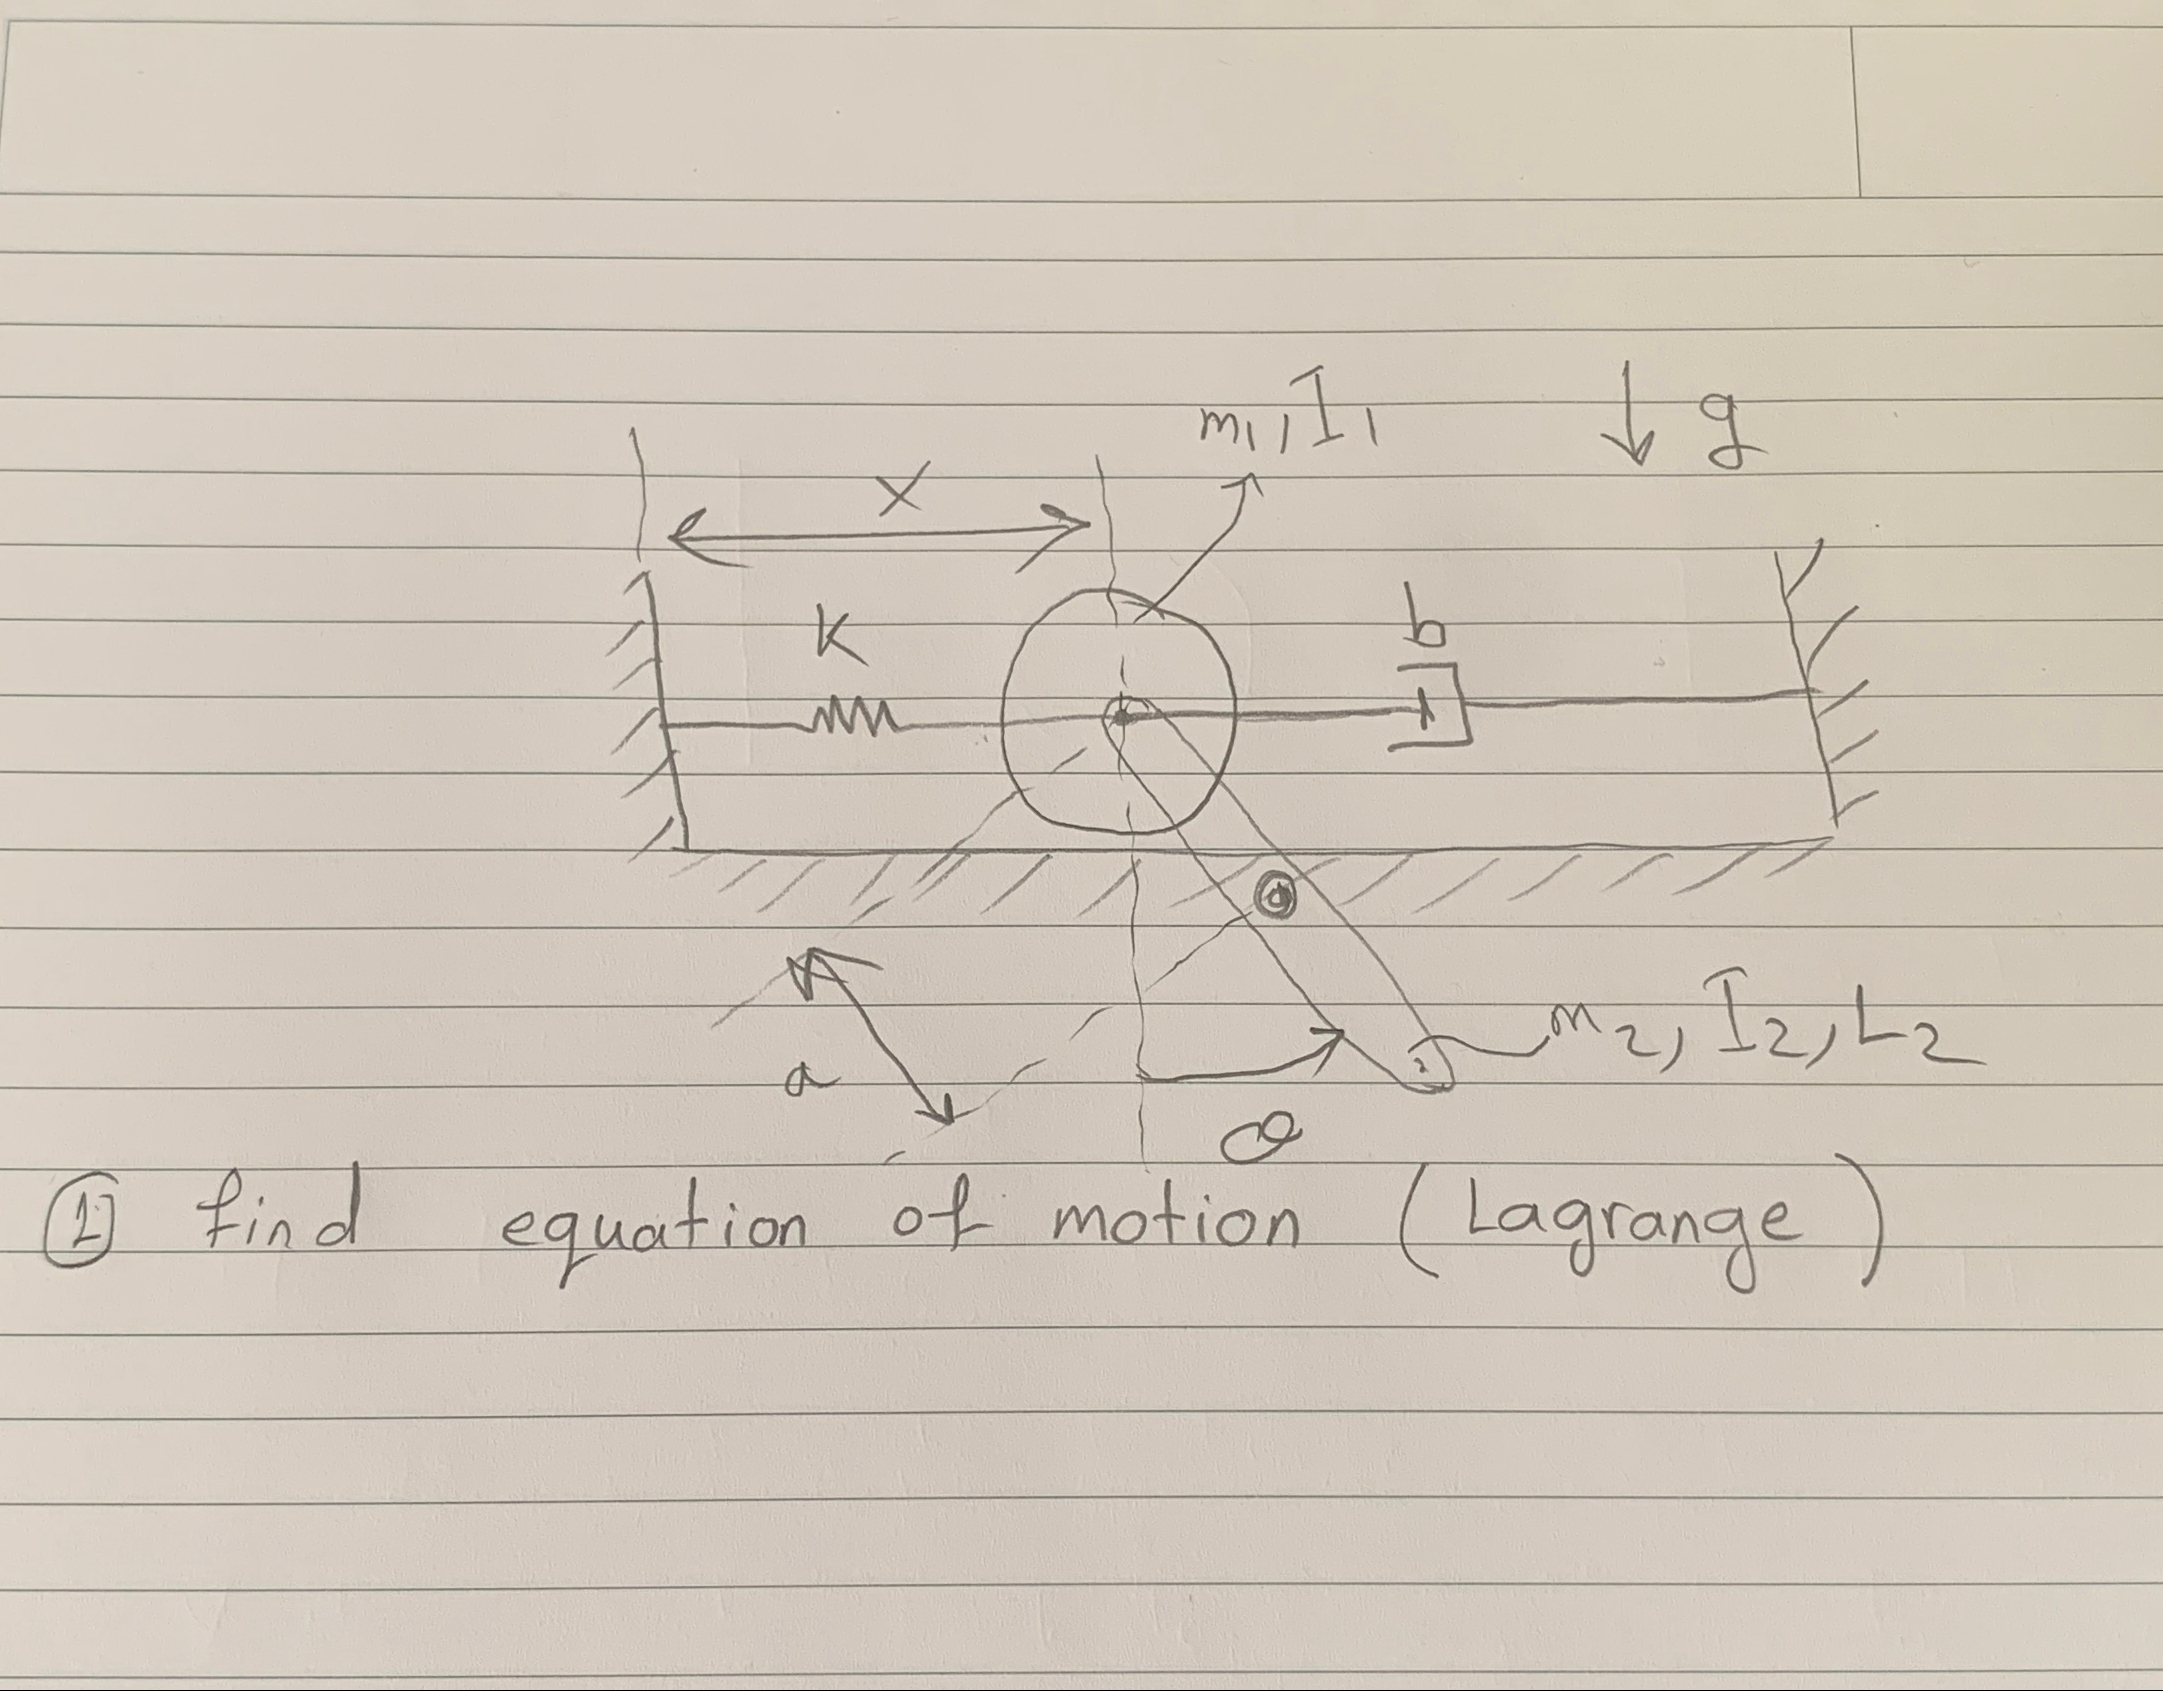 m1, I1
g
X
K
b
m2, I2, L2
a
θ
① find equation of motion (Lagrange)